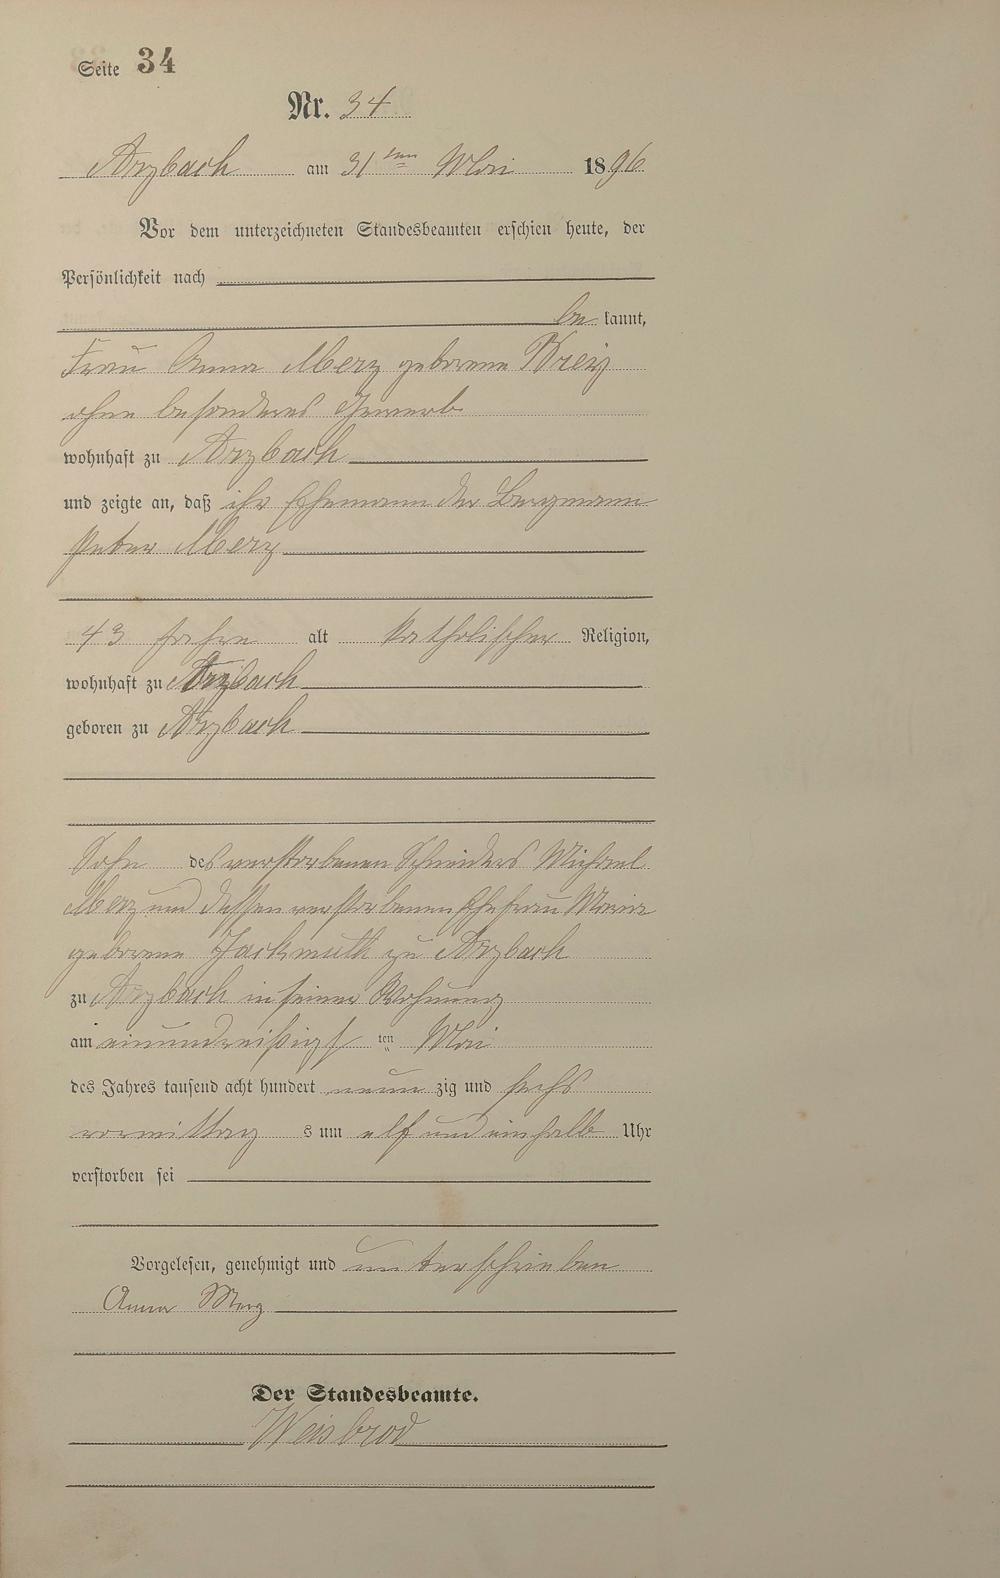 Seite 34
Nr. 34
Arzbach am 31ten Mai 1896
Vor dem unterzeichneten Standesbeamten erschien heute, der
Persönlichkeit nach
be kannt,
Frau Anna Merz geborene
ohne besonderes Gewerb
wohnhaft zu Arzbach
und zeigte an, daß ihr Ehemann der Bergmann
Peter Merz
43 Jahre alt katholischer Religion,
wohnhaft zu Arzbach
geboren zu Arzbach
Sohn des verstorbenen Michael
Merz und dessen verstorbenen Ehefrau Maria
geborene Jackmuth zu Arzbach
zu Arzbach in seiner Wohnung
am einunddreißigs ten Mai
des Jahres tausend acht hundert neun zig und sechs
vormittag s um elf und einhalb Uhr
verstorben sei
Vorgelesen, genehmigt und unterschrieben
Anna Merz
Der Standesbeamte.
Weisbrod